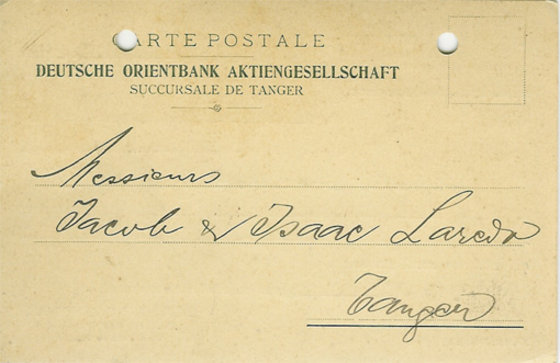 CARTE POSTALE
DEUTSCHE ORIENTBANK AKTIENGESELLSCHAFT
SUCCURSALE DE TANGER
Messieurs
Jacob & Isaac Laredo
Tanger